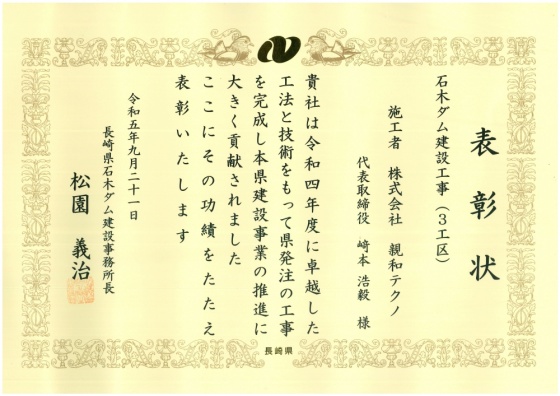 表彰状
石木ダム建設工事（３工区）
施工者　株式会社　親和テクノ
代表取締役　﨑本　浩毅　様
貴社は令和四年度に卓越した
工法と技術をもって県発注の工事
を完成し本県建設事業の推進に
大きく貢献されました
ここにその功績をたたえ
表彰いたします
令和五年九月二十一日
長崎県石木ダム建設事務所長
松園　義治
長崎県